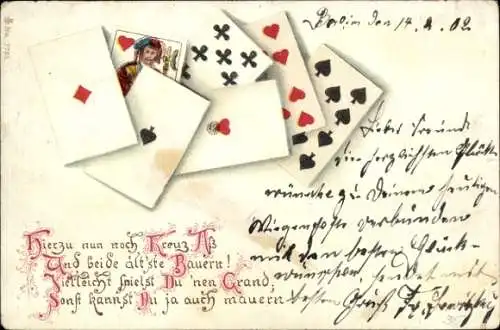 Berlin den 14. 2. 02.
Lieber Freund
die herzlichsten Glück
wünsche zu Deinem heutigen
Wiegenfeste verbunden
mit den besten Glück-
wünschen sendet mit
besten Gruß Fr.
Hierzu nun noch Kreuz Aß
Und beide ält'ste Bauern!
Vielleicht spielst Du 'nen Grand,
Sonst kannst Du ja auch mauern